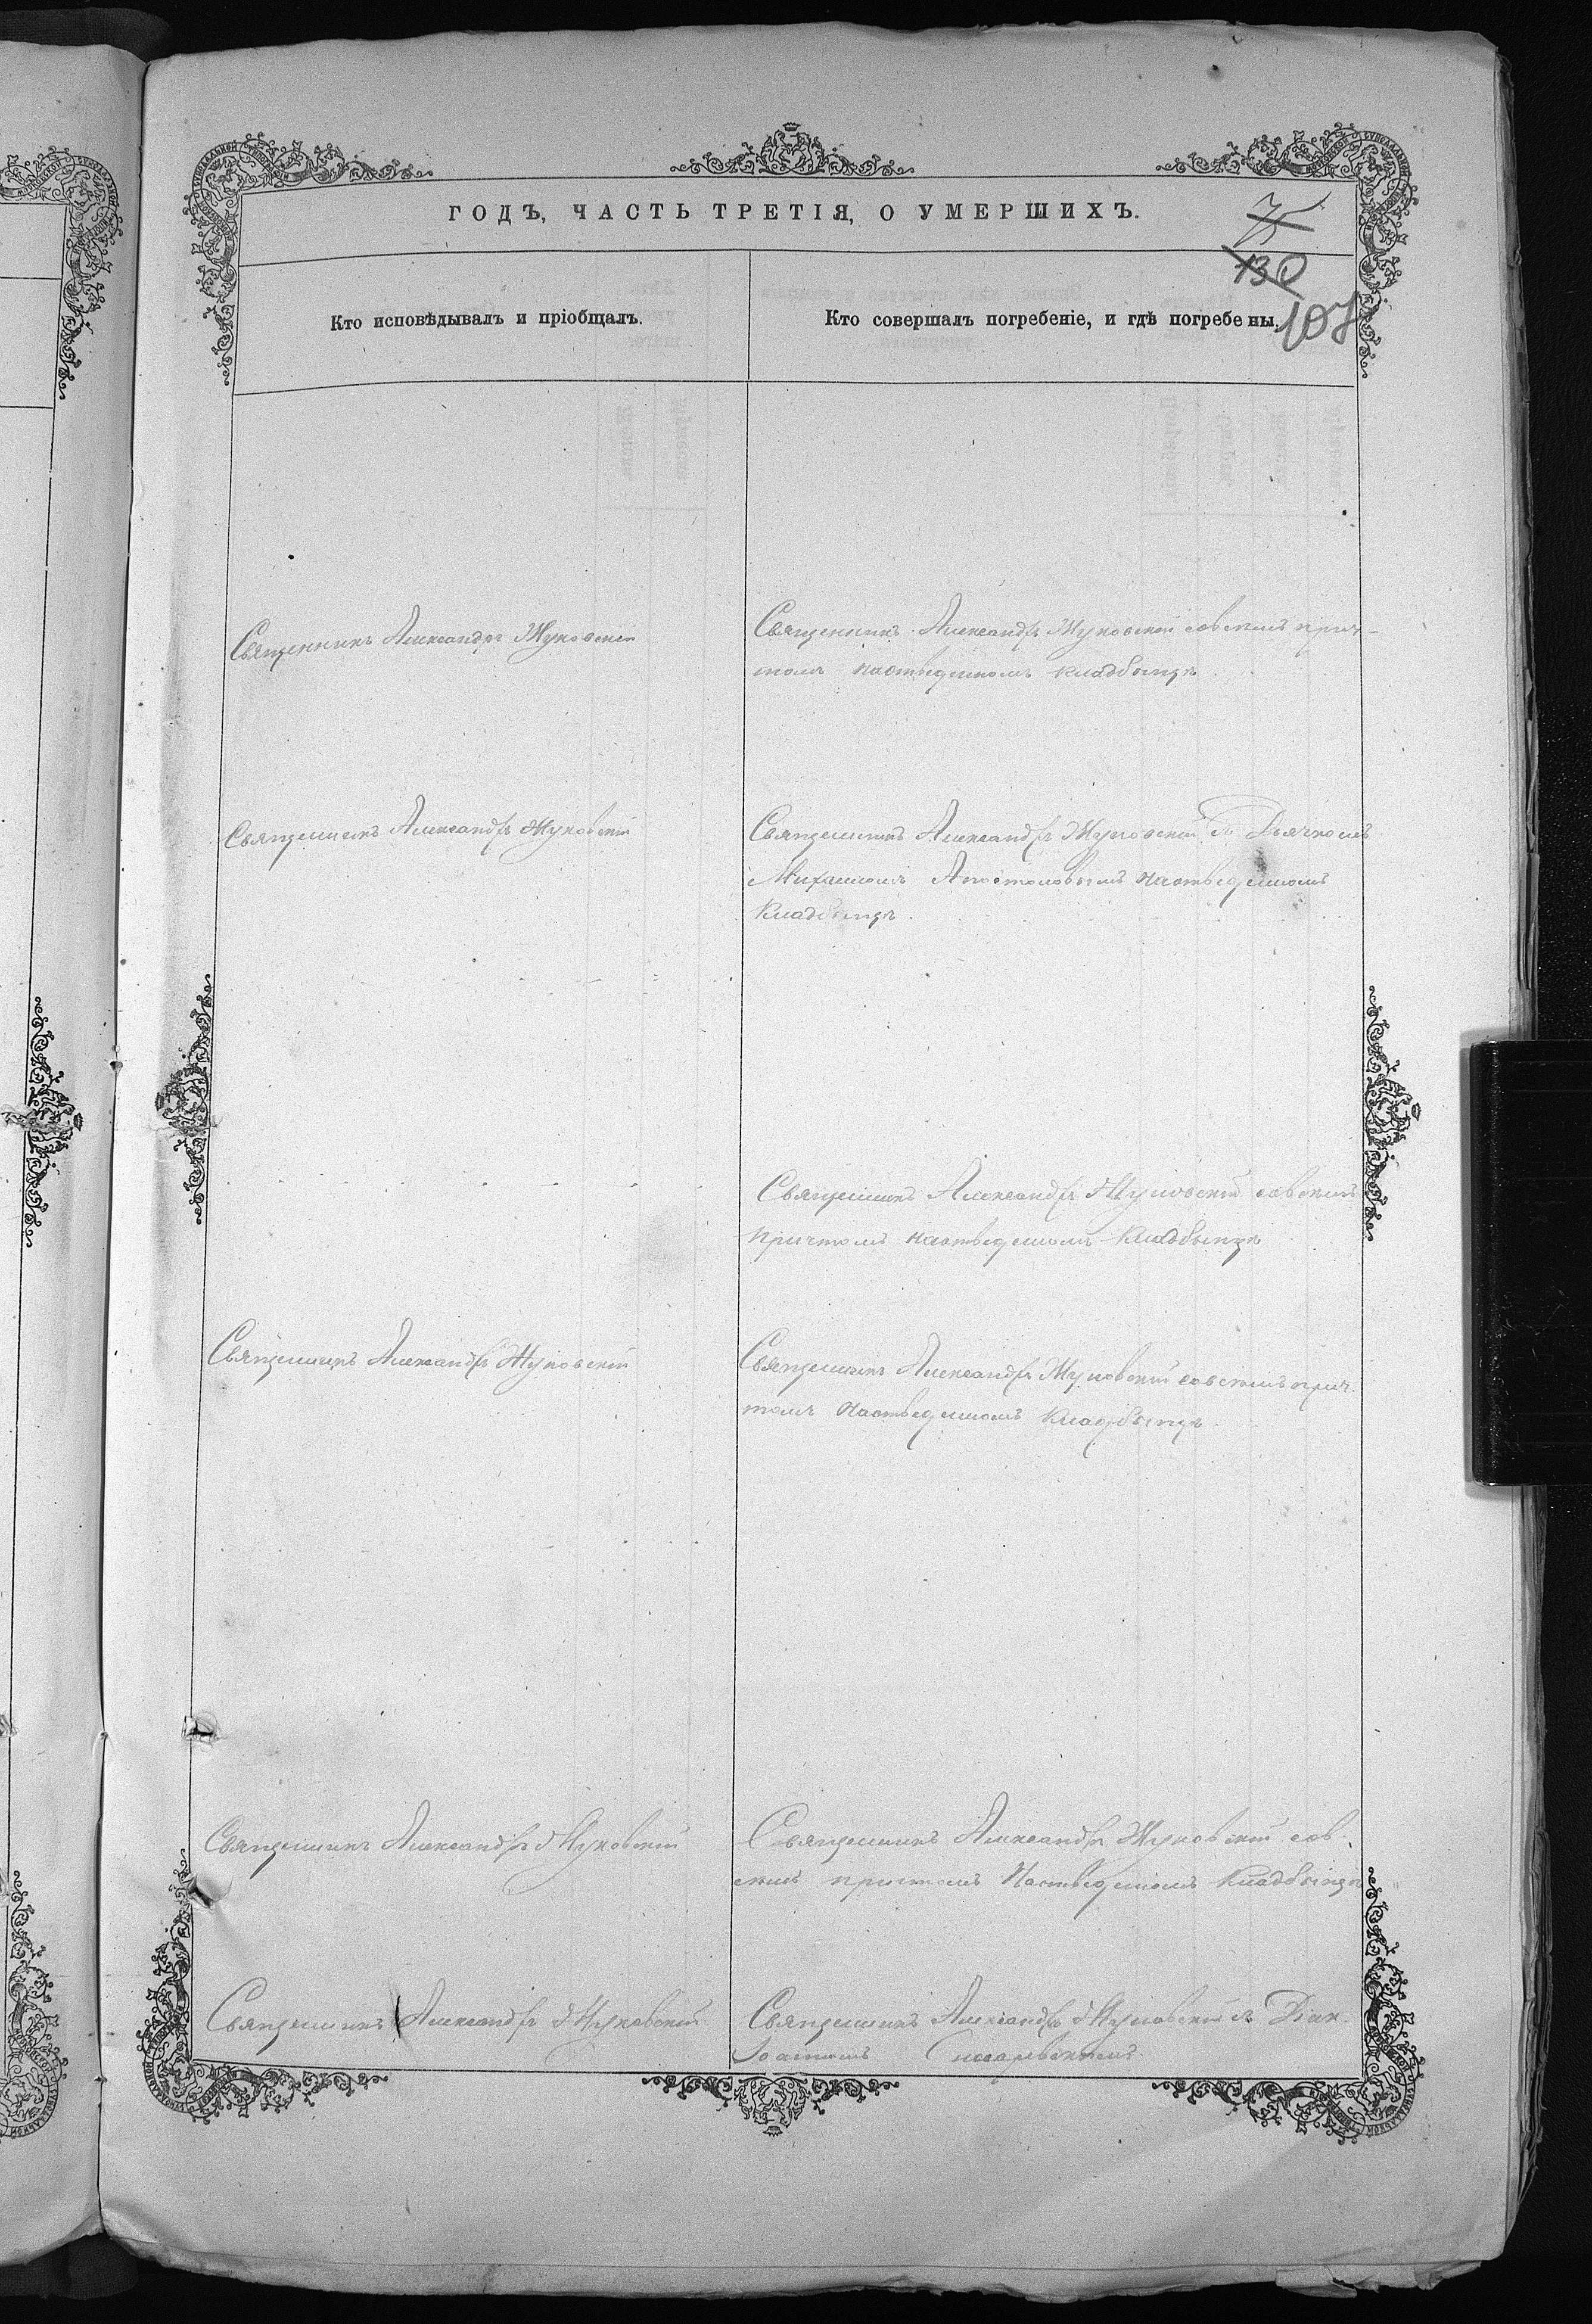 ГОДЪ, ЧАСТЬ ТРЕТІЯ, О УМЕРШИХЪ.
75
130
107
Кто исповѣдывалъ и пріобщалъ.
Кто совершалъ погребеніе, и гдѣ погребены.
Священникъ Александръ Жуковскій
Священникъ Александръ Жуковскій совсемъ прич-
томъ наотведенномъ кладбищѣ
Священникъ Александръ Жуковскій
Священникъ Александръ Жуковскій съ Дьячкомъ
Михаиломъ Апостоловымъ наотведенномъ
Кладбищѣ.
Священникъ Александръ Жуковскій совсемъ
причтомъ наотведенномъ Кладбищѣ
Священникъ Александръ Жуковскій
Священникъ Александръ Жуковскій совсемъ прич
томъ наотведенномъ Кладбищѣ
Священникъ Александръ Жуковскій
Священникъ Александръ Жуковскій сов
семъ причтомъ Наотведенномъ Кладбищѣ
Священникъ Александръ Жуковскій
Священникъ Александръ Жуковскій съ Діак
Іоанномъ